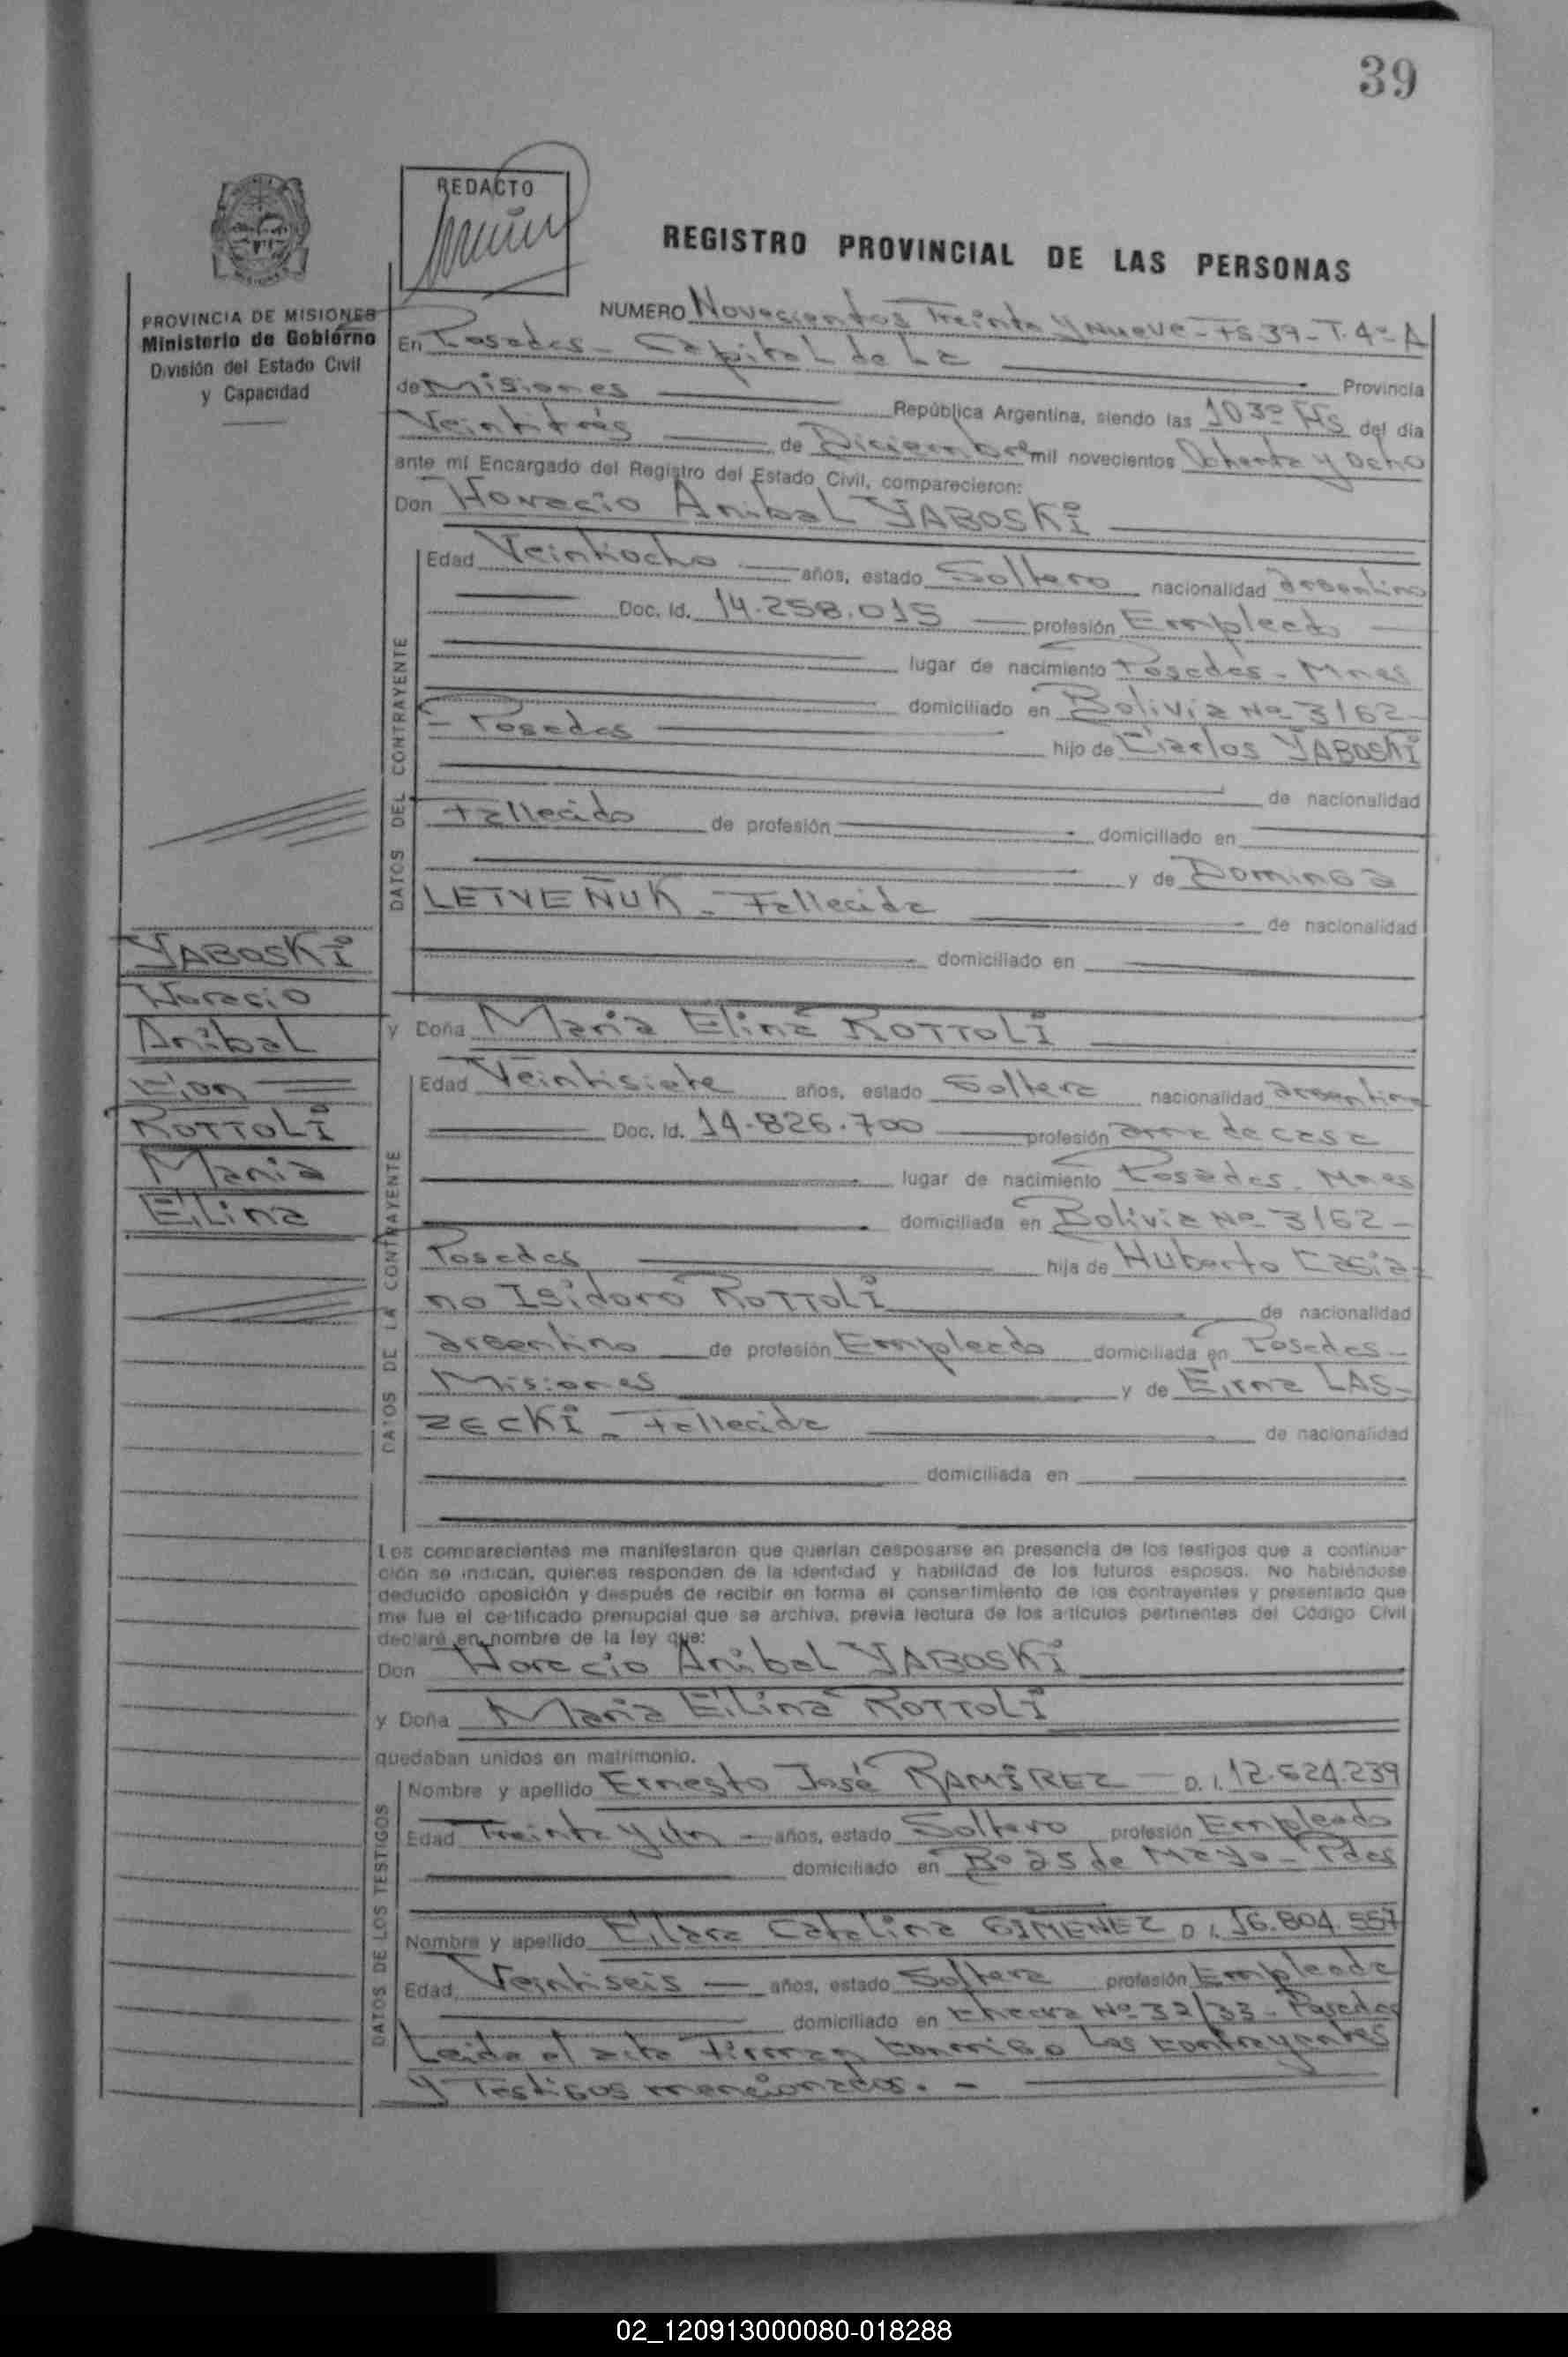 39
REDACTO
REGISTRO PROVINCIAL DE LAS PERSONAS
PROVINCIA DE MISIONES
Ministerio de Gobierno
División del Estado Civil
y Capacidad
NUMERO Novecientos Treinta y Nueve - Fs 39 - T. 4º A
En Posadas - Capital de La Provincia
de Misiones República Argentina, siendo las 10 30 Hs del día
Veintitrés de Diciembre mil novecientos Ochenta y Ocho
ante mí Encargado del Registro del Estado Civil, comparecieron:
Don Horacio Anibal YABOSKI
DATOS DEL CONTRAYENTE
Edad Veintiocho años, estado Soltero nacionalidad argentino
Doc. Id. 14.258.015 profesión Empleado
lugar de nacimiento Posadas - Mnes
domiciliado en Bolivia Nº 3162 -
- Posadas hijo de Carlos YABOSKI
de nacionalidad
Fallecido de profesión domiciliado en
y de Dominga
LETVEÑUK - Fallecida de nacionalidad
domiciliado en
YABOSKI
Horacio
Anibal
Con
ROTTOLI
Maria
Elina
y Doña Maria Elina ROTTOLI
DATOS DE LA CONTRAYENTE
Edad Veintisiete años, estado Soltera nacionalidad argentina
Doc. Id. 14.826.700 profesión ama de casa
lugar de nacimiento Posadas - Mnes
domiciliada en Bolivia Nº 3162 -
Posadas hija de Huberto Casia-
no Isidoro ROTTOLI de nacionalidad
argentino de profesión Empleado domiciliada en Posadas -
Misiones y de Erna LAS-
ZECKI - Fallecida de nacionalidad
domiciliada en
Los comparecientes me manifestaron que querían desposarse en presencia de los testigos que a continua-
ción se indican, quienes responden de la identidad y habilidad de los futuros esposos. No habiéndose
deducido oposición y después de recibir en forma el consentimiento de los contrayentes y presentado que
me fue el certificado prenupcial que se archiva, previa lectura de los artículos pertinentes del Código Civil
declaré en nombre de la ley que:
Don Horacio Anibal YABOSKI
y Doña Maria Elina ROTTOLI
quedaban unidos en matrimonio.
DATOS DE LOS TESTIGOS
Nombre y apellido Ernesto José RAMIREZ D. I. 12.624.239
Edad Treinta y Un años, estado Soltero profesión Empleado
domiciliado en Bº 25 de Mayo - Pdas
Nombre y apellido Clara Catalina GIMENEZ D. I. 16.804.557
Edad Veintiseis años, estado Soltera profesión Empleada
domiciliado en Nº 32/33 - Posadas
Leída el acta Firman conmigo Los Contrayentes
y Testigos mencionados. -
02_120913000080-018288